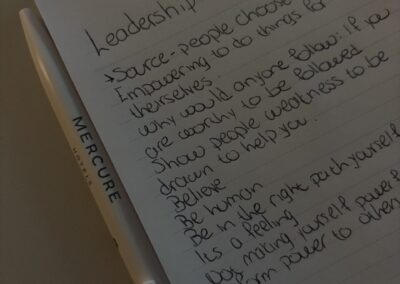 Leadership
Source - People choose
Empowering to do things for
themselves.
why would anyone follow: If you
are worthy to be followed
Show people weakness to be
drawn to help you.
Believe
Be human
Be in the right path yourself
Its a feeling
making yourself powerf
power to other
MERCURE
HOTELS